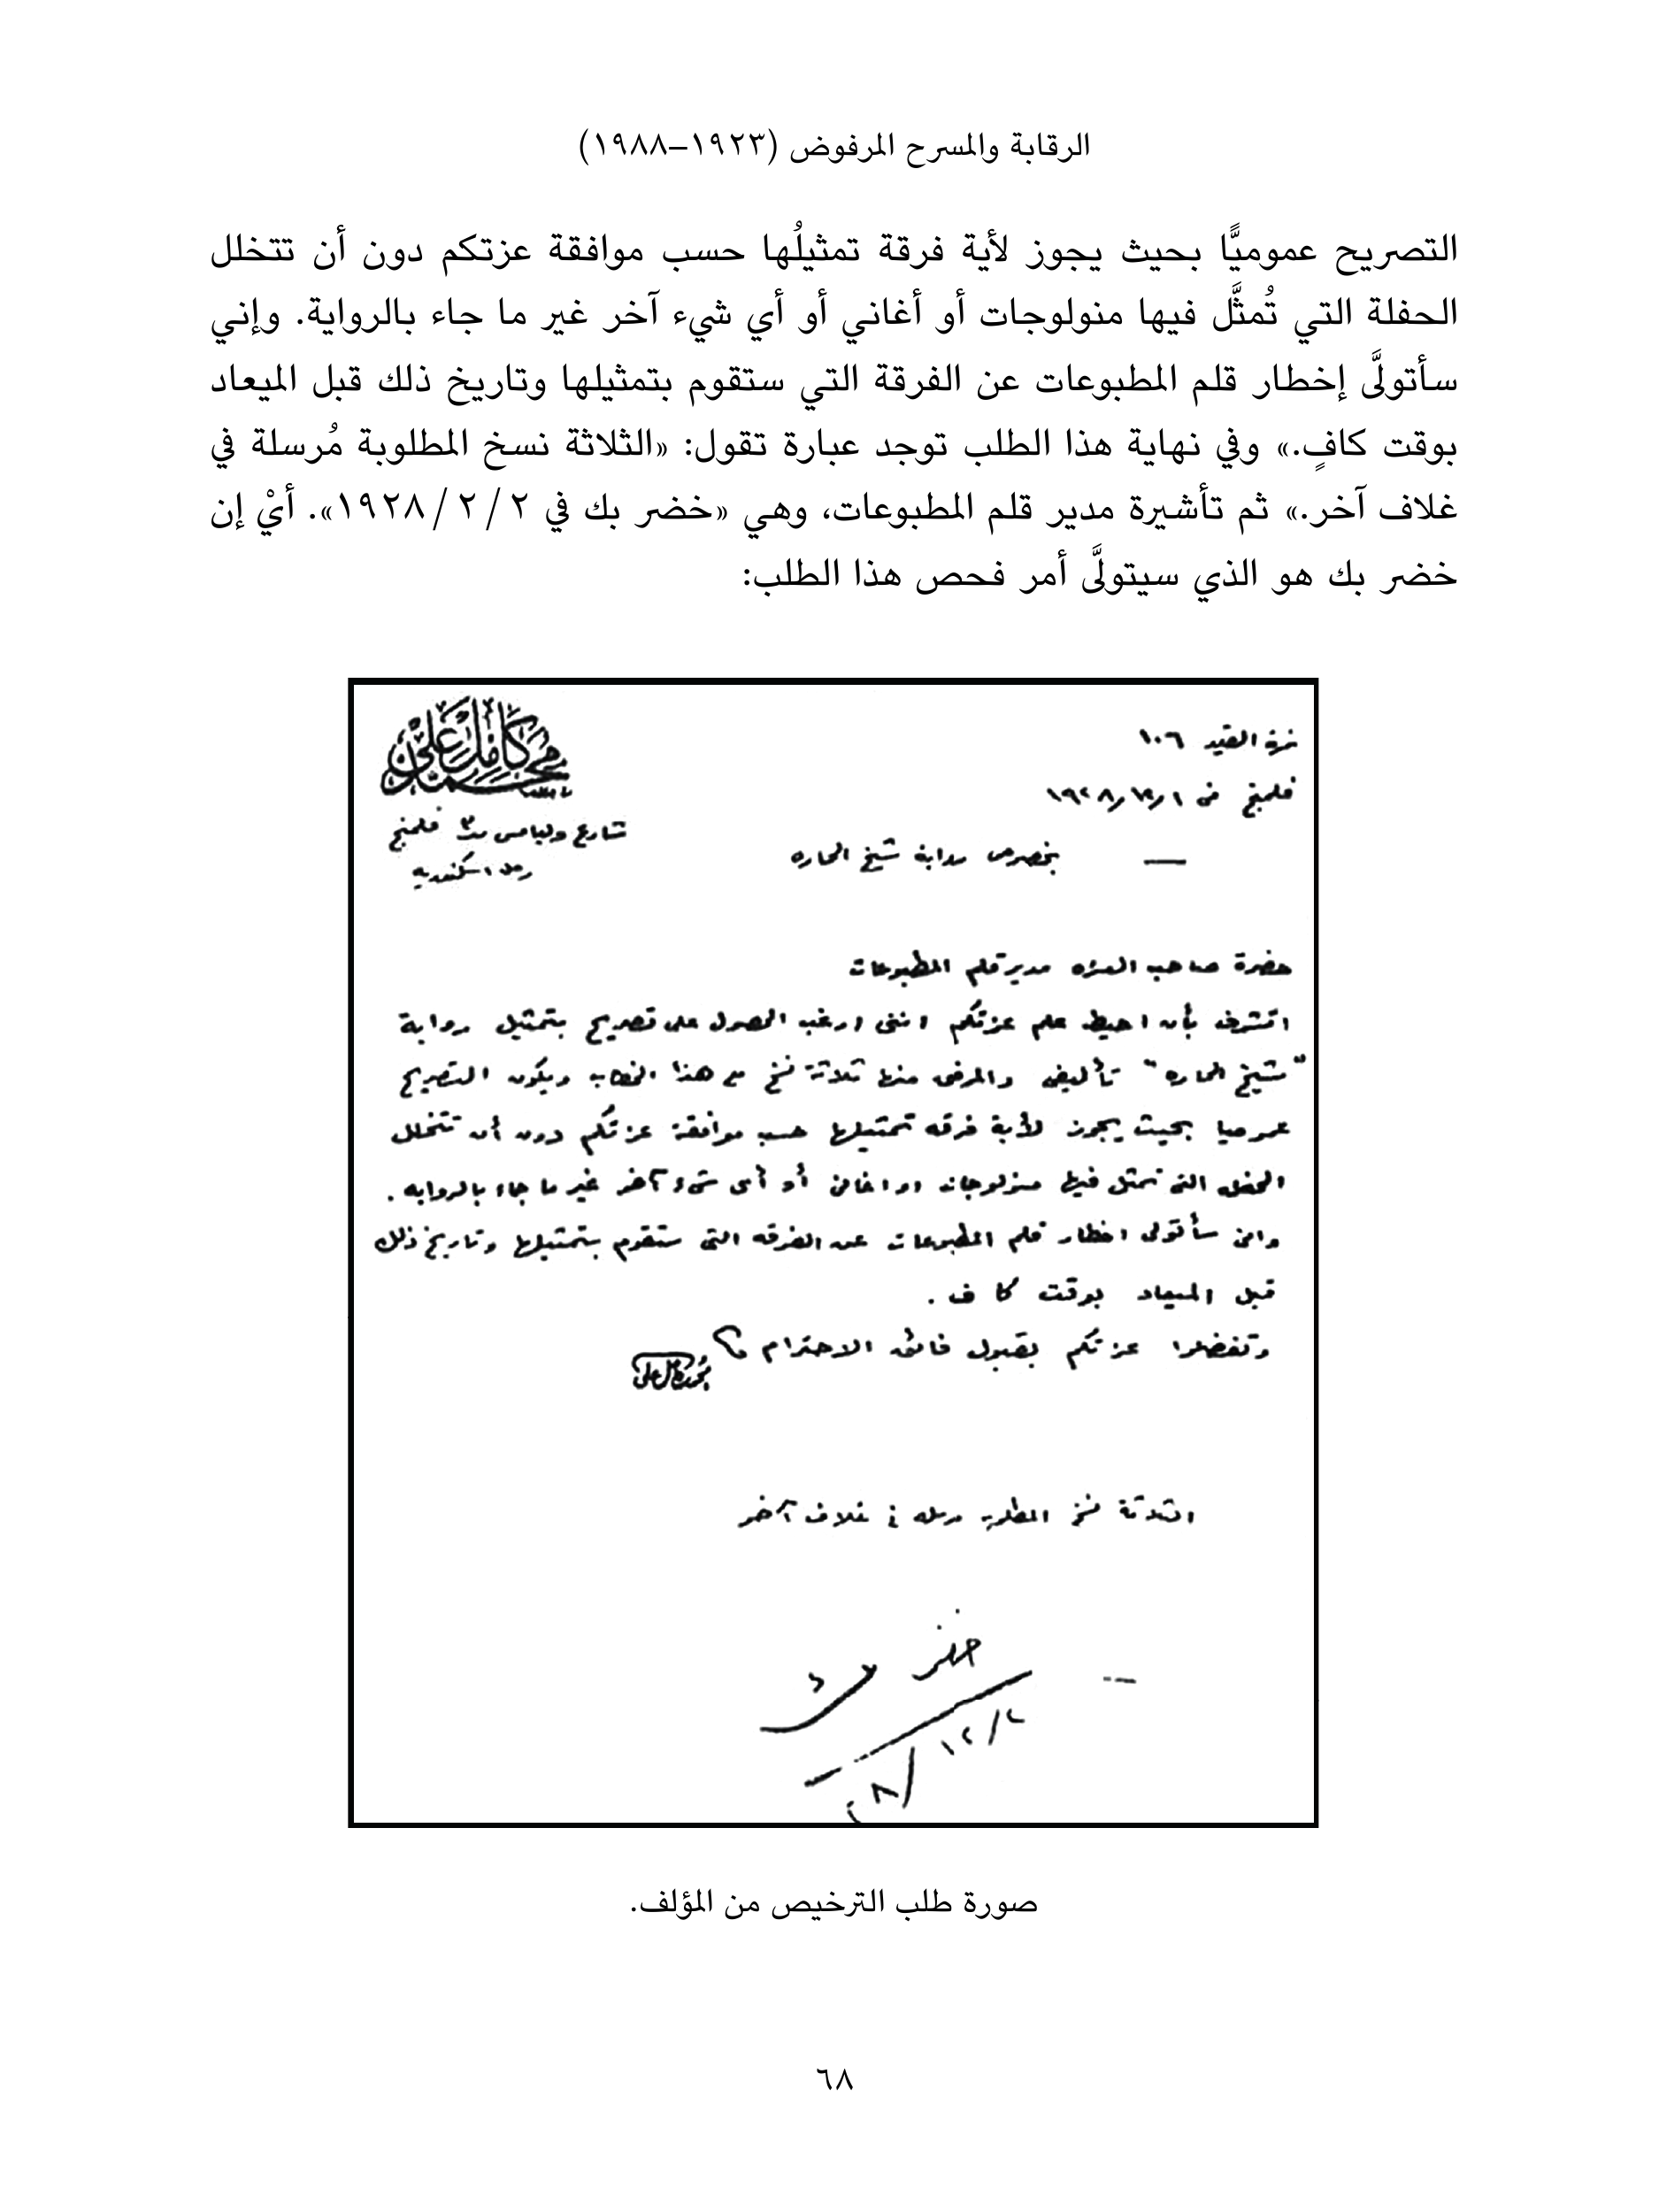 الرقابة والمسرح المرفوض (١٩٢٣–١٩٨٨)
التصريح عموميًّا بحيث يجوز لأية فرقة تمثيلُها حسب موافقة عزتكم دون أن تتخلل
الحفلة التي تُمثَّل فيها منولوجات أو أغاني أو أي شيء آخر غير ما جاء بالرواية. وإني
سأتولَّى إخطار قلم المطبوعات عن الفرقة التي ستقوم بتمثيلها وتاريخ ذلك قبل الميعاد
بوقت كافٍ.» وفي نهاية هذا الطلب توجد عبارة تقول: «الثلاثة نسخ المطلوبة مُرسلة في
غلاف آخر.» ثم تأشيرة مدير قلم المطبوعات، وهي «خضر بك في ٢ / ٢ / ١٩٢٨». أيْ إن
خضر بك هو الذي سيتولَّى أمر فحص هذا الطلب:
محمد كامل على
نمرة القيد ١٠٦
فلمنج في
شارع وليامس فلمنج
رمل اسكندريه
بخصوص رواية شيخ الحاره
حضرة صاحب العزه مدير قلم المطبوعات
اتشرف بأن احيط علم عزتكم اننى ارغب الحصول على تصريح بتمثيل رواية
"شيخ الحاره" تأليفى والمرفق منها ثلاثة نسخ مع هذا الخطاب ويكون التصريح
عموميا بحيث يجوز لأية فرقه تمثيلها حسب موافقة عزتكم دون أن تتخلل
الحفله التى تمثل فيها منولوجات او اغانى أو أى شىء آخر غير ما جاء بالروايه.
وانى سأتولى اخطار قلم المطبوعات عن الفرقه التى ستقوم بتمثيلها وتاريخ ذلك
قبل الميعاد بوقت كاف.
وتفضلوا عزتكم بقبول فائق الاحترام
محمد كامل على
الثلاثة نسخ المطلوبه مرسله في غلاف آخر
خضر بك
٢/١٢
٢٨/
صورة طلب الترخيص من المؤلف.
٦٨